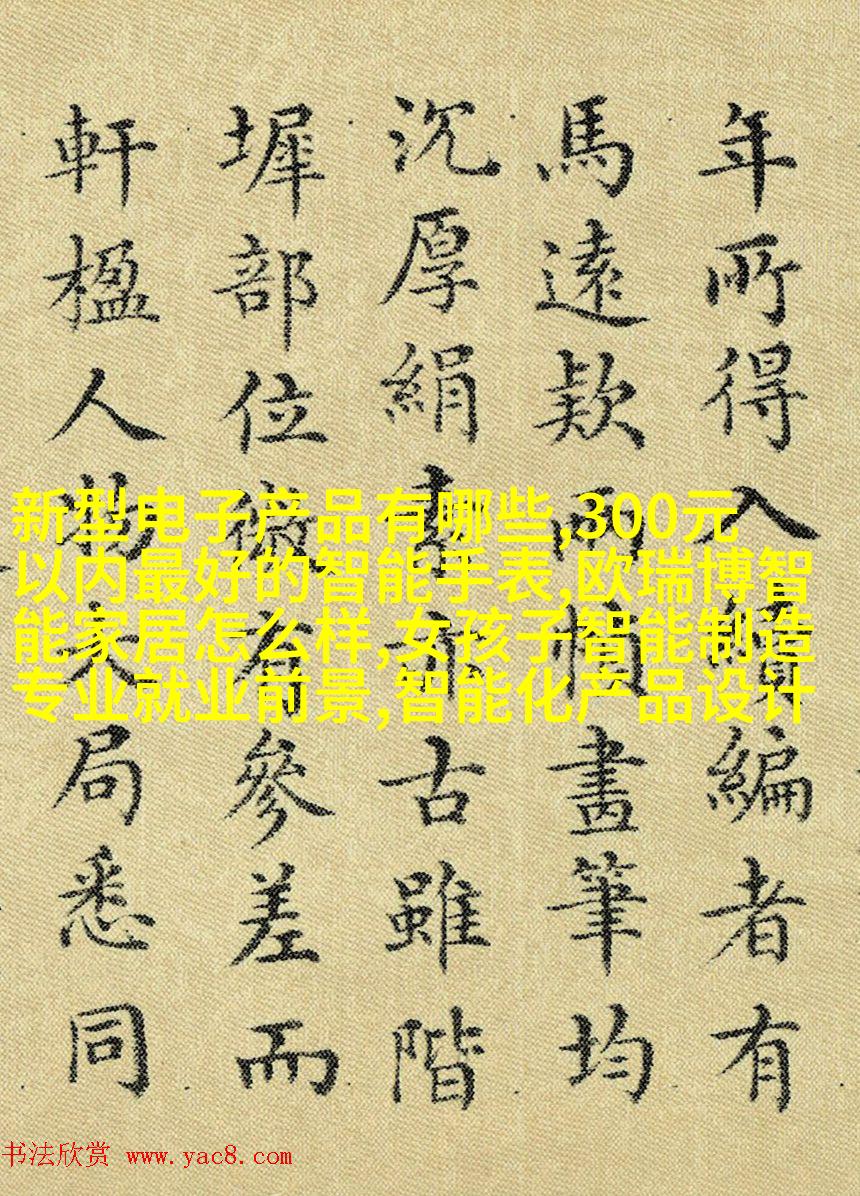 年所得入續編者有
馬遠款兩幀畫筆均
沉厚絹素亦古雖階
墀部位微有參差而
軒楹人物大局悉同
新型电子产品有哪些,300元
以内最好的智能手表,欧瑞博智
能家居怎么样,女孩子智能制造
专业就业前景,智能化产品设计
书法欣赏 www.yac8.com